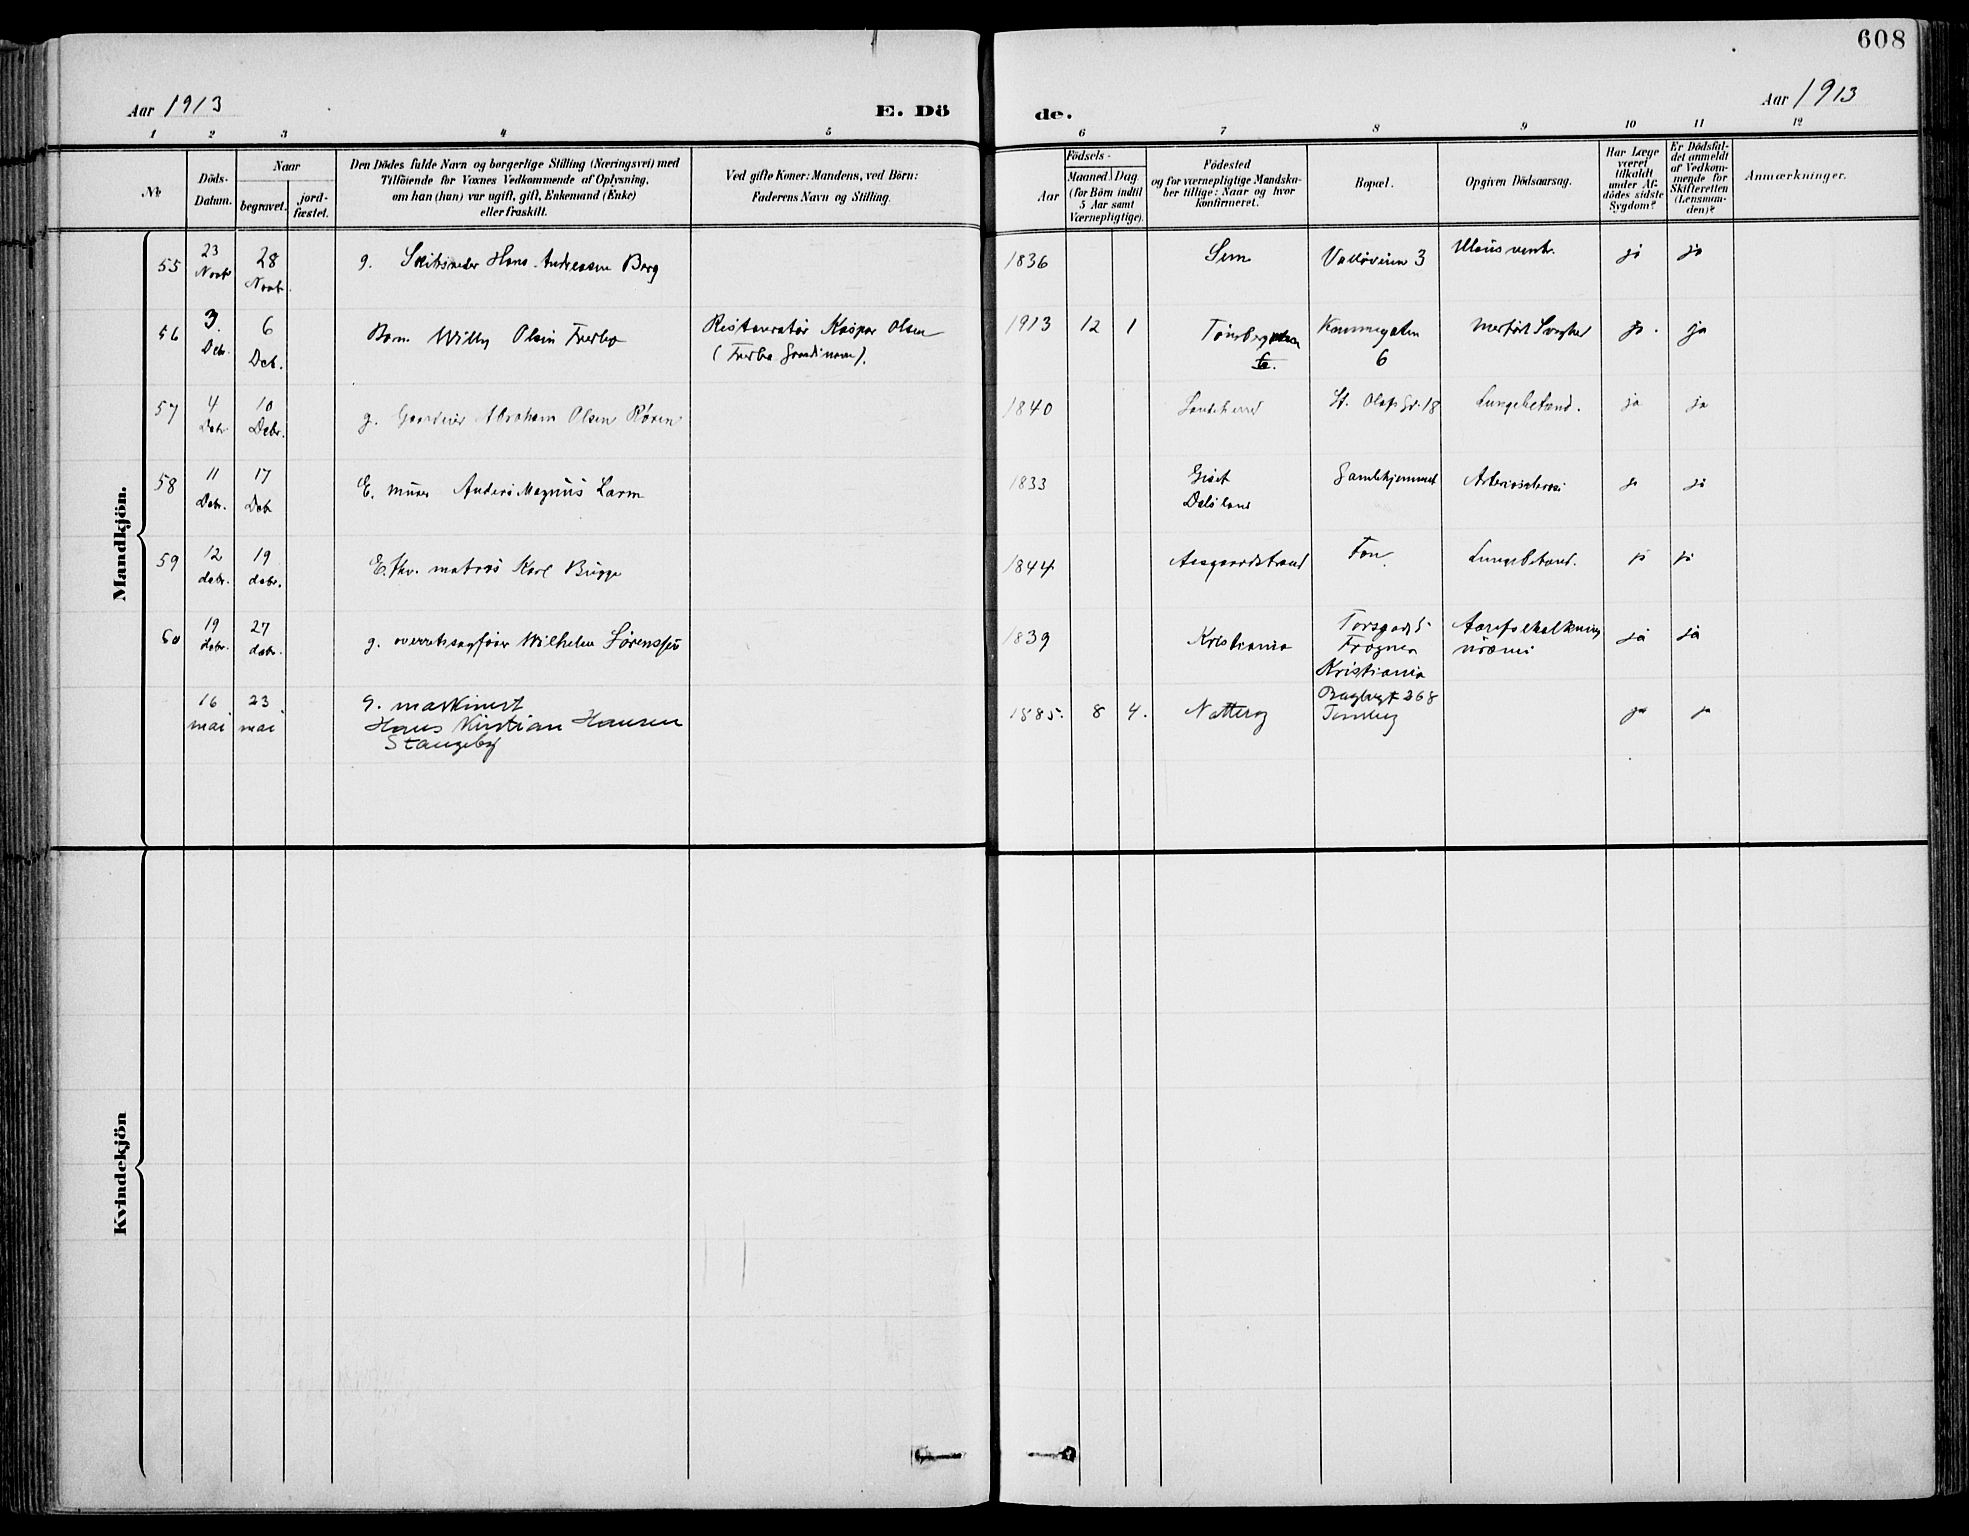 608
Aar 1913
E. Dö
de.
Aar 1913
1 2 3 4 5 6 7 8 9 10 11 12
No
Döds-
Datum.
Naar
begravet.
jord-
fæstet.
Den Dödes fulde Navn og borgerlige Stilling (Næringsvei) med
Tilföiende for Voxnes Vedkommende af Oplysning,
om han (hun) var ugift, gift, Enkemand (Enke)
eller fraskilt.
Ved gifte Koner: Mandens, ved Börn:
Faderens Navn og Stilling.
Födsels-
Aar
Maaned. Dag
(for Börn indtil
5 Aar samt
Værnepligtige).
Födested
og for værnepligtige Mandska-
ber tillige: Naar og hvor
konfirmeret.
Bopæl.
Opgiven Dödsaarsag.
Har Læge
været
tilkaldt
under Af-
dödes sidste
Sygdom?
Er Dödsfal-
det anmeldt
af Vedkom-
mende for
Skifteretten
(Lensman-
den)?
Anmærkninger.
Mandkjön.
55 23 Novbr 28 Novbr. g. Hans Andreassen Berg 1836 Sem Valløveien 3 ja ja
56 3. Dcb. 6 Dcb. Barn Willy Olsen Restauratør Kaspar Olsen 1913 12 1 Tønsberg 6 ja. ja
57 4 Dcbr 10 Dcbr. g. Abraham Olsen Røren 1840 St. Olafs Gd. 18 Lungebetænd. ja ja
58 11 Dcbr. 17 Dcb E. murer Anders Magnus Larm 1833 Dalsland Gamlehjemmet ja ja
59 12 dcbr. 19 dcbr. E. fhv. matros Karl Bugge 1844 Aasgaardstrand Fon Lungebetænd. ja ja
60 19 dcbr. 27 dcbr. g. overretssagfører Wilhelm Sørenssen 1839 Kristiania Frogner Kristiania Aareforkalkning uræmi ja ja
16 mai 23 mai g. maskinist
Hans Kristian Hansen
Stangeby 1885. 8 4. Nøtterø Tønsberg ja ja
Kvindekjön